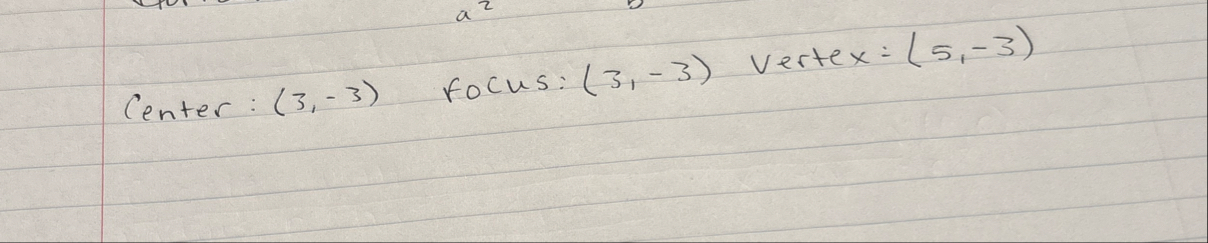 a²
Center : (3,-3) focus: (3,-3) Vertex = (5,-3)